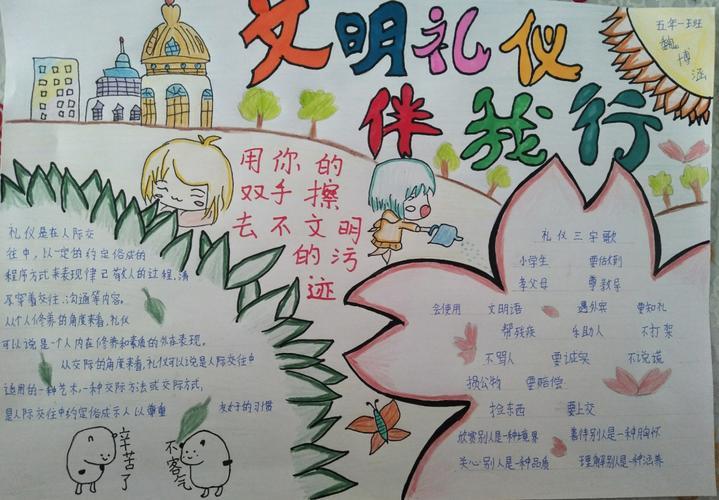 文明礼仪
伴我行
五年一班
魏博涵
用你的
双手擦
去不文明
的污
迹
礼仪是在人际交
往中,以一定的约定俗成的
程序方式来表现律己敬人的过程,涉
及穿着交往、沟通等内容。
从个人修养的角度来看,礼仪
可以说是一个人内在修养和素质的外在表现。
从交际的角度来看,礼仪可以说是人际交往中
适用的一种艺术,一种交际方法或交际方式,
是人际交往中约定俗成示人以尊重 友好的习惯
辛苦了
不客气
礼仪三字歌
小学生 要伶俐
孝父母 尊教导
会使用 文明语 遇外宾 要知礼
帮残疾 乐助人 不打架
不骂人 要诚实 不说谎
损公物 要赔偿
捡东西 要上交
欣赏别人是一种境界 善待别人是一种胸怀
关心别人是一种品质 理解别人是一种涵养